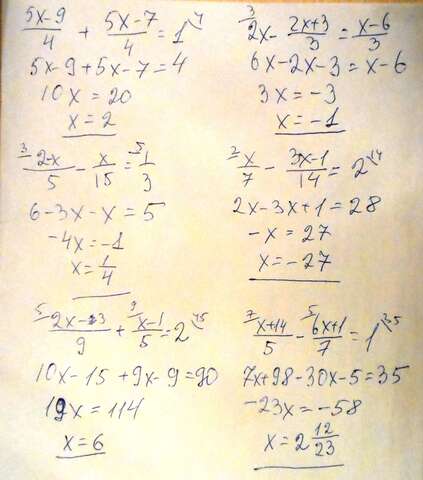 (5x-9)/4 + (5x-7)/4 = 1^{\4}
5x-9+5x-7=4
10x=20
x=2
^{3/}2x - (2x+3)/3 = (x-6)/3
6x-2x-3=x-6
3x=-3
x=-1
^{3/}(2-x)/5 - x/15 = ^{5/}1/3
6-3x-x=5
-4x=-1
x=1/4
^{2/}x/7 - (3x-1)/14 = 2^{\14}
2x-3x+1=28
-x=27
x=-27
^{5/}(2x-3)/9 + ^{9/}(x-1)/5 = 2^{\45}
10x-15+9x-9=90
19x=114
x=6
^{7/}(x+14)/5 - ^{5/}(6x+1)/7 = 1^{\35}
7x+98-30x-5=35
-23x=-58
x=2 12/23